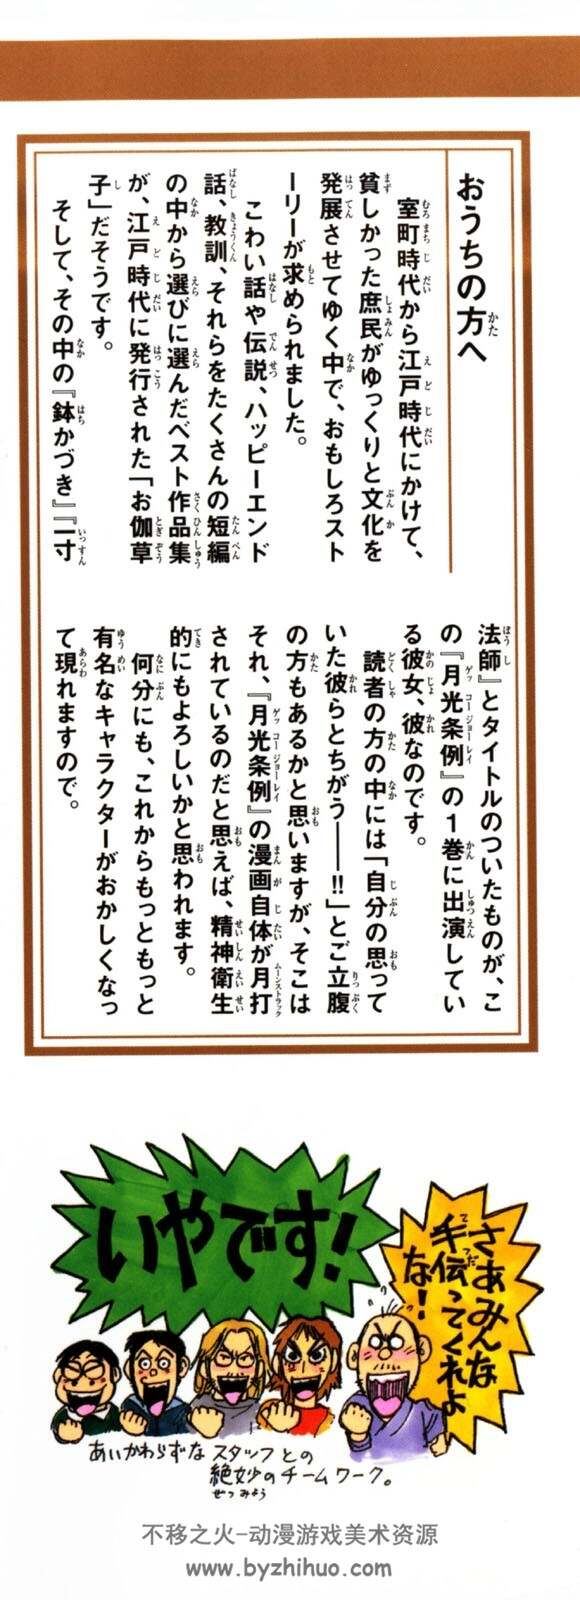 おうちの方へ
室町時代から江戸時代にかけて、
貧しかった庶民がゆっくりと文化を
発展させてゆく中で、おもしろスト
ーリーが求められました。
こわい話や伝説、ハッピーエンド
話、教訓、それらをたくさんの短編
の中から選びに選んだベスト作品集
が、江戸時代に発行された「お伽草
子」だそうです。
そして、その中の『鉢かづき』『一寸
法師』とタイトルのついたものが、こ
の『月光条例』の1巻に出演してい
る彼女、彼なのです。
読者の方の中には「自分の思って
いた彼らとちがう――!!」とご立腹
の方もあるかと思いますが、そこは
それ、『月光条例』の漫画自体が月打
されているのだと思えば、精神衛生
的にもよろしいかと思われます。
何分にも、これからもっともっと
有名なキャラクターがおかしくなっ
て現れますので。
さあみんな
手伝ってくれよ
な!
いやです!
あいかわらずな スタッフとの
絶妙のチームワーク。
ぜつみょう
不移之火-动漫游戏美术资源
www.byzhihuo.com